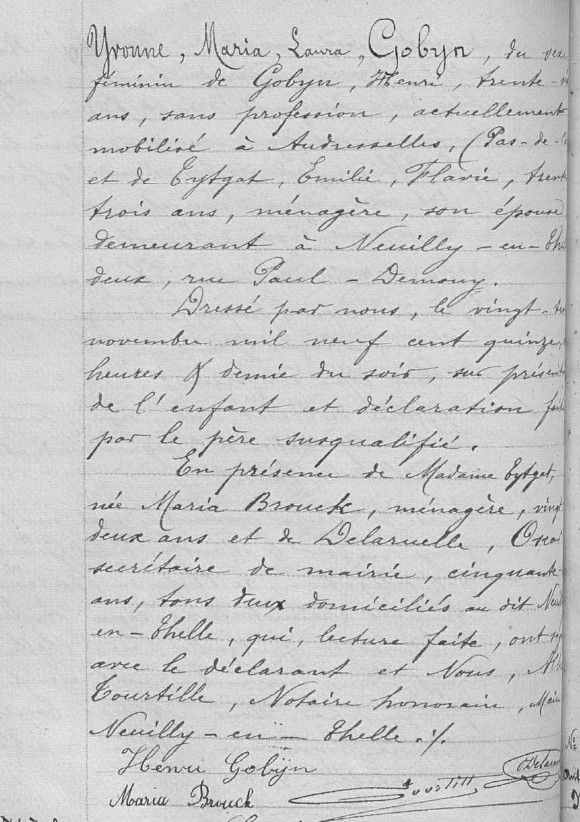 Yvonne, Maria, Laura, Gobyn, du sexe
féminin de Gobyn, Henri, trente-
ans, sans profession, actuellement
mobilisé à Audresselles, (Pas-de-C
et de Eytgat, Emilie, Flavie, trent
trois ans, ménagère, son épouse
demeurant à Neuilly-en-The
deux, rue Paul-Demouy.
Dressé par nous, le vingt-
novembre mil neuf cent quinze,
heures & demie du soir, sur présent
de l'enfant et déclaration faite
par le père susqualifié.
En présence de Madame Eytgat,
née Maria Brouck, ménagère, vingt
deux ans et de Delaruelle, Osca
secrétaire de mairie, cinquante-
ans, tous deux domiciliés au dit Neui
en-Thelle, qui, lecture faite, ont si
avec le déclarant et Nous,
Tourtille, Notaire honoraire, Maire
Neuilly-en-Thelle ./.
Henri Gobÿn
Maria Brouck Tourtill
No